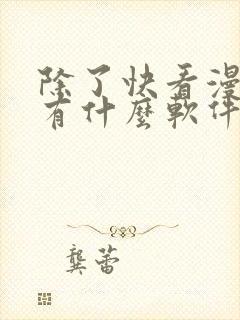 除了快看漫
有什麼軟件
龔蕾